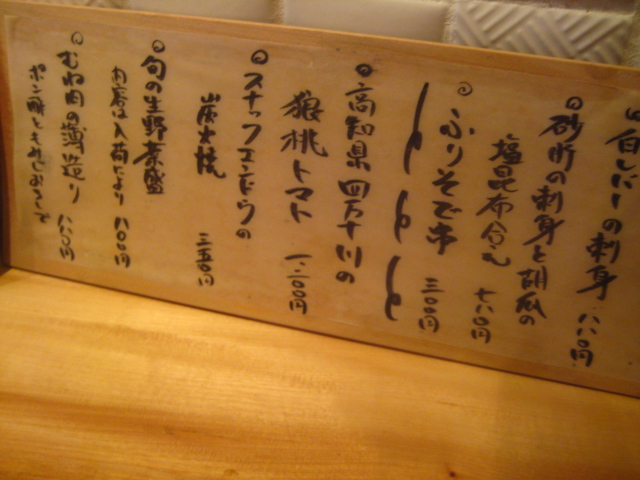 白レバーの刺身 八八〇円
砂肝の刺身と胡瓜の
塩昆布合え 七八〇円
ふりそで串 三〇〇円
高知県四万十川の
狼桃トマト 一、二〇〇円
スナップエンドウの
炭火焼 三五〇円
旬の生野菜盛
内容は入荷により 八〇〇円
むね肉の薄造り 八八〇円
ポン酢ともみじおろしで